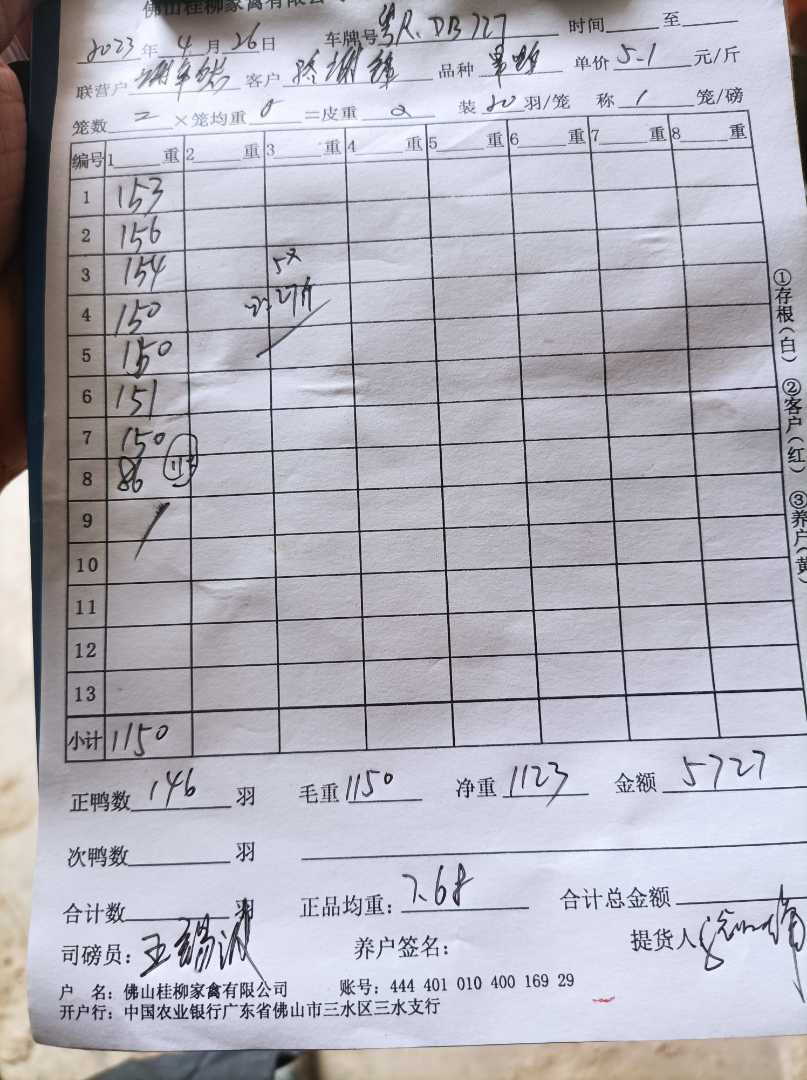 佛山桂柳家禽有限公
2023年4月26日 车牌号粤R.DB727 时间 至
联营户 客户 品种 单价5.1元/斤
笼数二×笼均重 =皮重 装20羽/笼 称1笼/磅
编号 1 重 2 重 3 重 4 重 5 重 6 重 7 重 8 重
1 153
2 156
3 154
4 150 27斤
5 150
6 151
7 150
8 86
9
10
11
12
13
小计 1150
正鸭数146羽 毛重1150 净重1123 金额5727
次鸭数 羽
合计数 羽 正品均重:7.68 合计总金额
司磅员:王锡波 养户签名: 提货人
户 名:佛山桂柳家禽有限公司 账号:444 401 010 400 169 29
开户行:中国农业银行广东省佛山市三水区三水支行
①存根(白) ②客户(红) ③养户(黄)